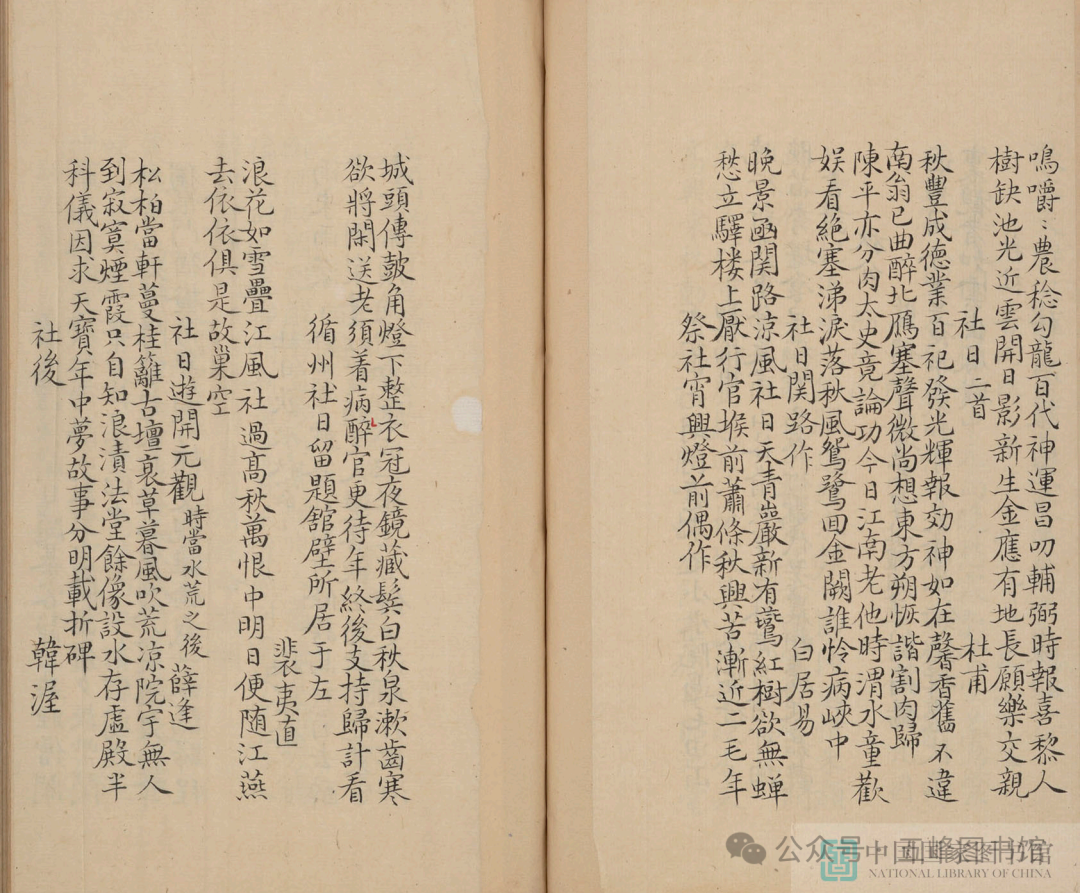 鳴嚼〻農稔勾龍百代神運昌叨輔弼時報喜黎人
樹缺池光近雲開日影新生金應有地長願樂交親
社日二首
杜甫
秋豐成德業百祀發光輝報効神如在馨香舊不違
南翁巳曲醉北鴈塞聲微尚想東方朔恢諧割肉歸
陳平亦分肉太史竟論功今日江南老他時渭水童歡
娱看絶塞涕淚落秋風鴛鷺回金闕誰怜病峽中
社日関路作
白居易
晚景函関路涼風社日天青巖新有鷰紅樹欲無蟬
愁立驛楼上厭行官堠前蕭條秋興苦漸近二毛年
祭社宵興燈前偶作
城頭傳皷角燈下整衣冠夜鏡藏鬓白秋泉漱齒寒
欲將閑送老須着病醉官更待年終後支持歸計看
循州社日留題舘壁所居于左
裴夷直
浪花如雪疊江風社過高秋萬恨中明日便随江燕
去依依俱是故巢空
社日遊開元觀
時當水荒之後
薛逢
松柏當軒蔓桂籬古壇衰草暮風吹荒凉院宇無人
到寂寞煙霞只自知浪漬法堂餘像設水存虛殿半
科儀因求天寶年中夢故事分明載折碑
社後
韓渥
公众号·中国国家图书馆
中国国家图书馆
NATIONAL LIBRARY OF CHINA